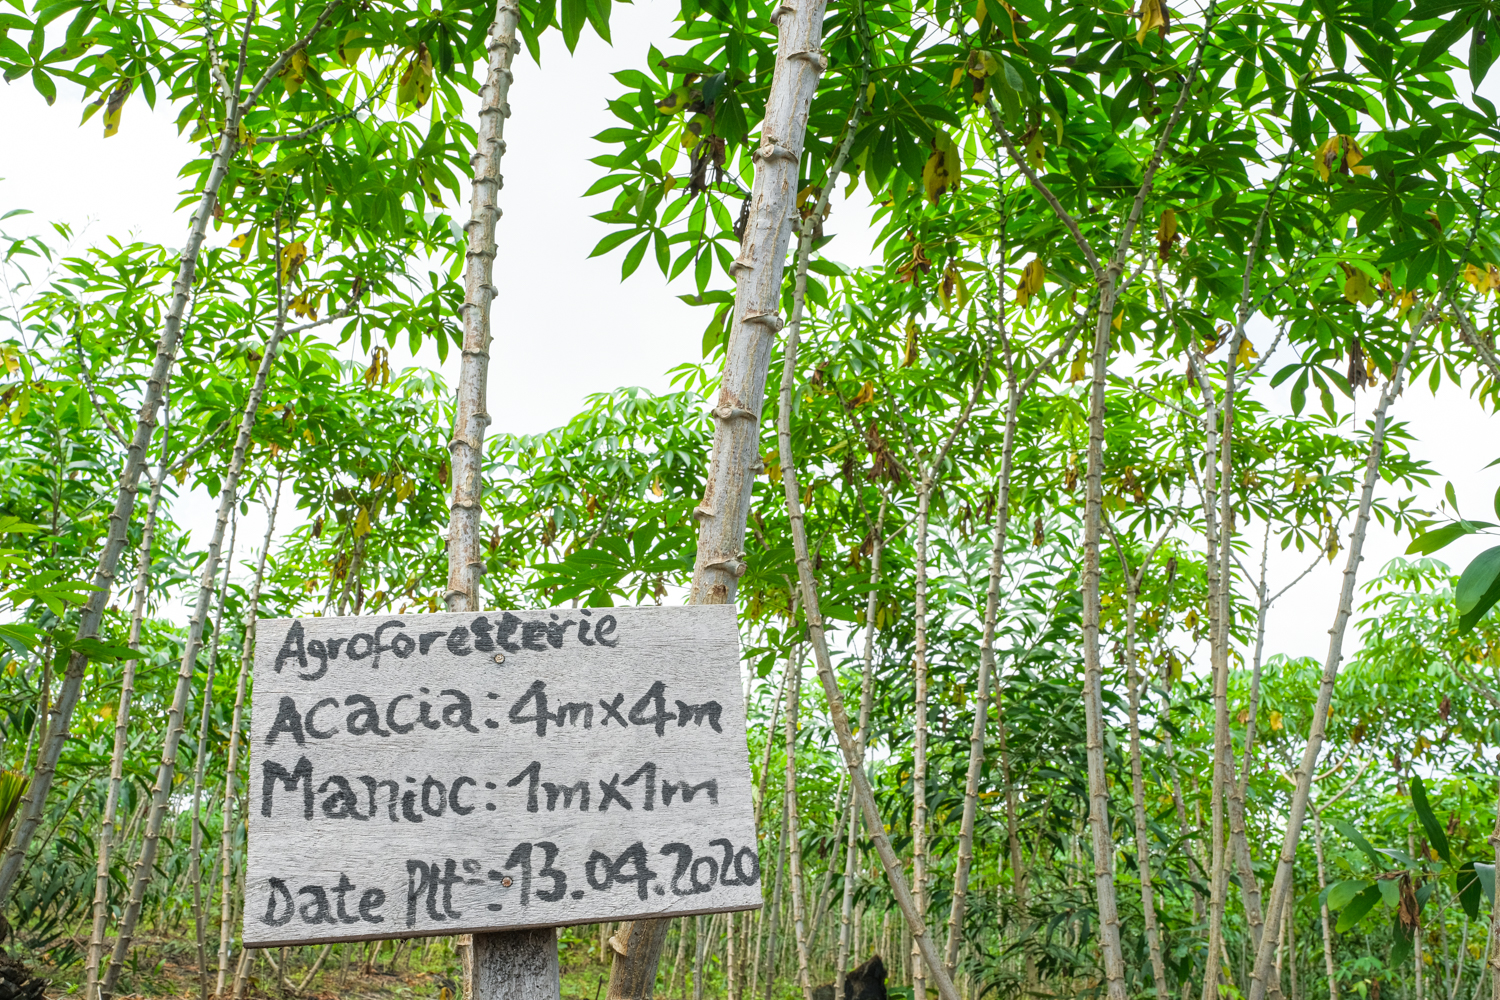 Agroforesterie
Acacia: 4mx4m
Manioc: 1mx1m
Date Pltº: 13.04.2020